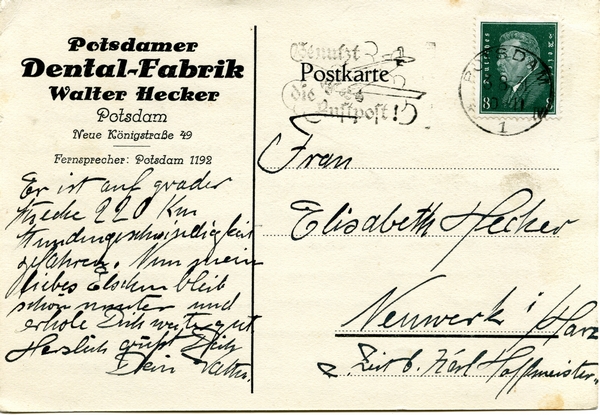 Potsdamer
Dental-Fabrik
Walter Hecker
Potsdam
Neue Königstraße 49
Fernsprecher: Potsdam 1192
Er ist auf grader
Strecke 220 Km
Stundengeschwindigkeit
gefahren. Nun mein
liebes Elschen bleib
schön munter und
erhole Dich weiter gut
Herzlich grüßt Dich
Dein Walter.
Benutzt
die
Luftpost!
Postkarte
Deutsches Reich
8 8
POTSDAM
1
Frau
Elisabeth Hecker
Neuwerk i/Harz
z. Zeit b. Karl Hoffmeister